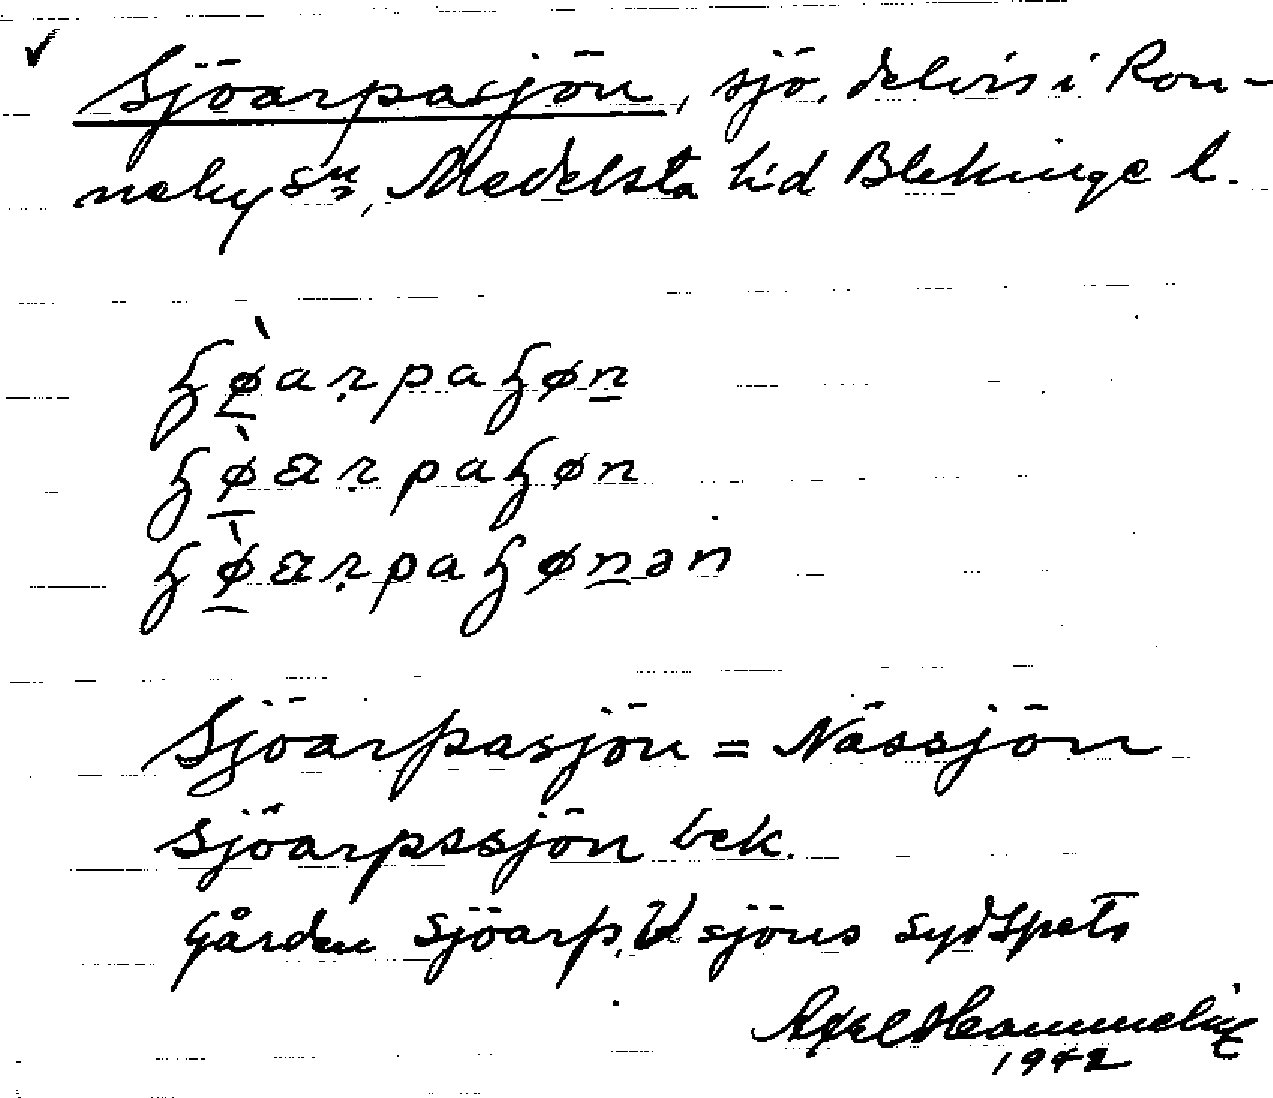 Sjöarpasjön, sjö, delvis i Ron-
neby sn, Medelsta hd Blekinge l.
ɧø̀arpaɧøn
ɧø̀arpaɧøn
ɧø̀arpaɧønən
Sjöarpasjön = Nässjön
Sjöarpssjön bek.
Gården Sjöarp, V sjöns sydspets
Axel Hammelin
1942